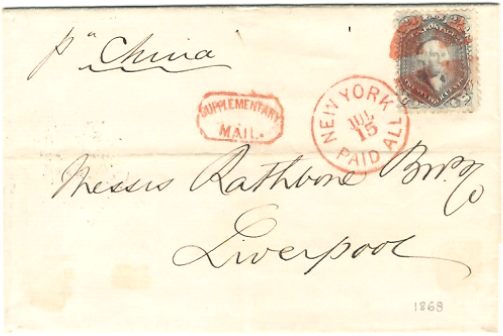 p "China"
SUPPLEMENTARY
MAIL.
NEW YORK
JUL
15
PAID ALL
Messrs Rathbone Bros. & Co
Liverpool
1868